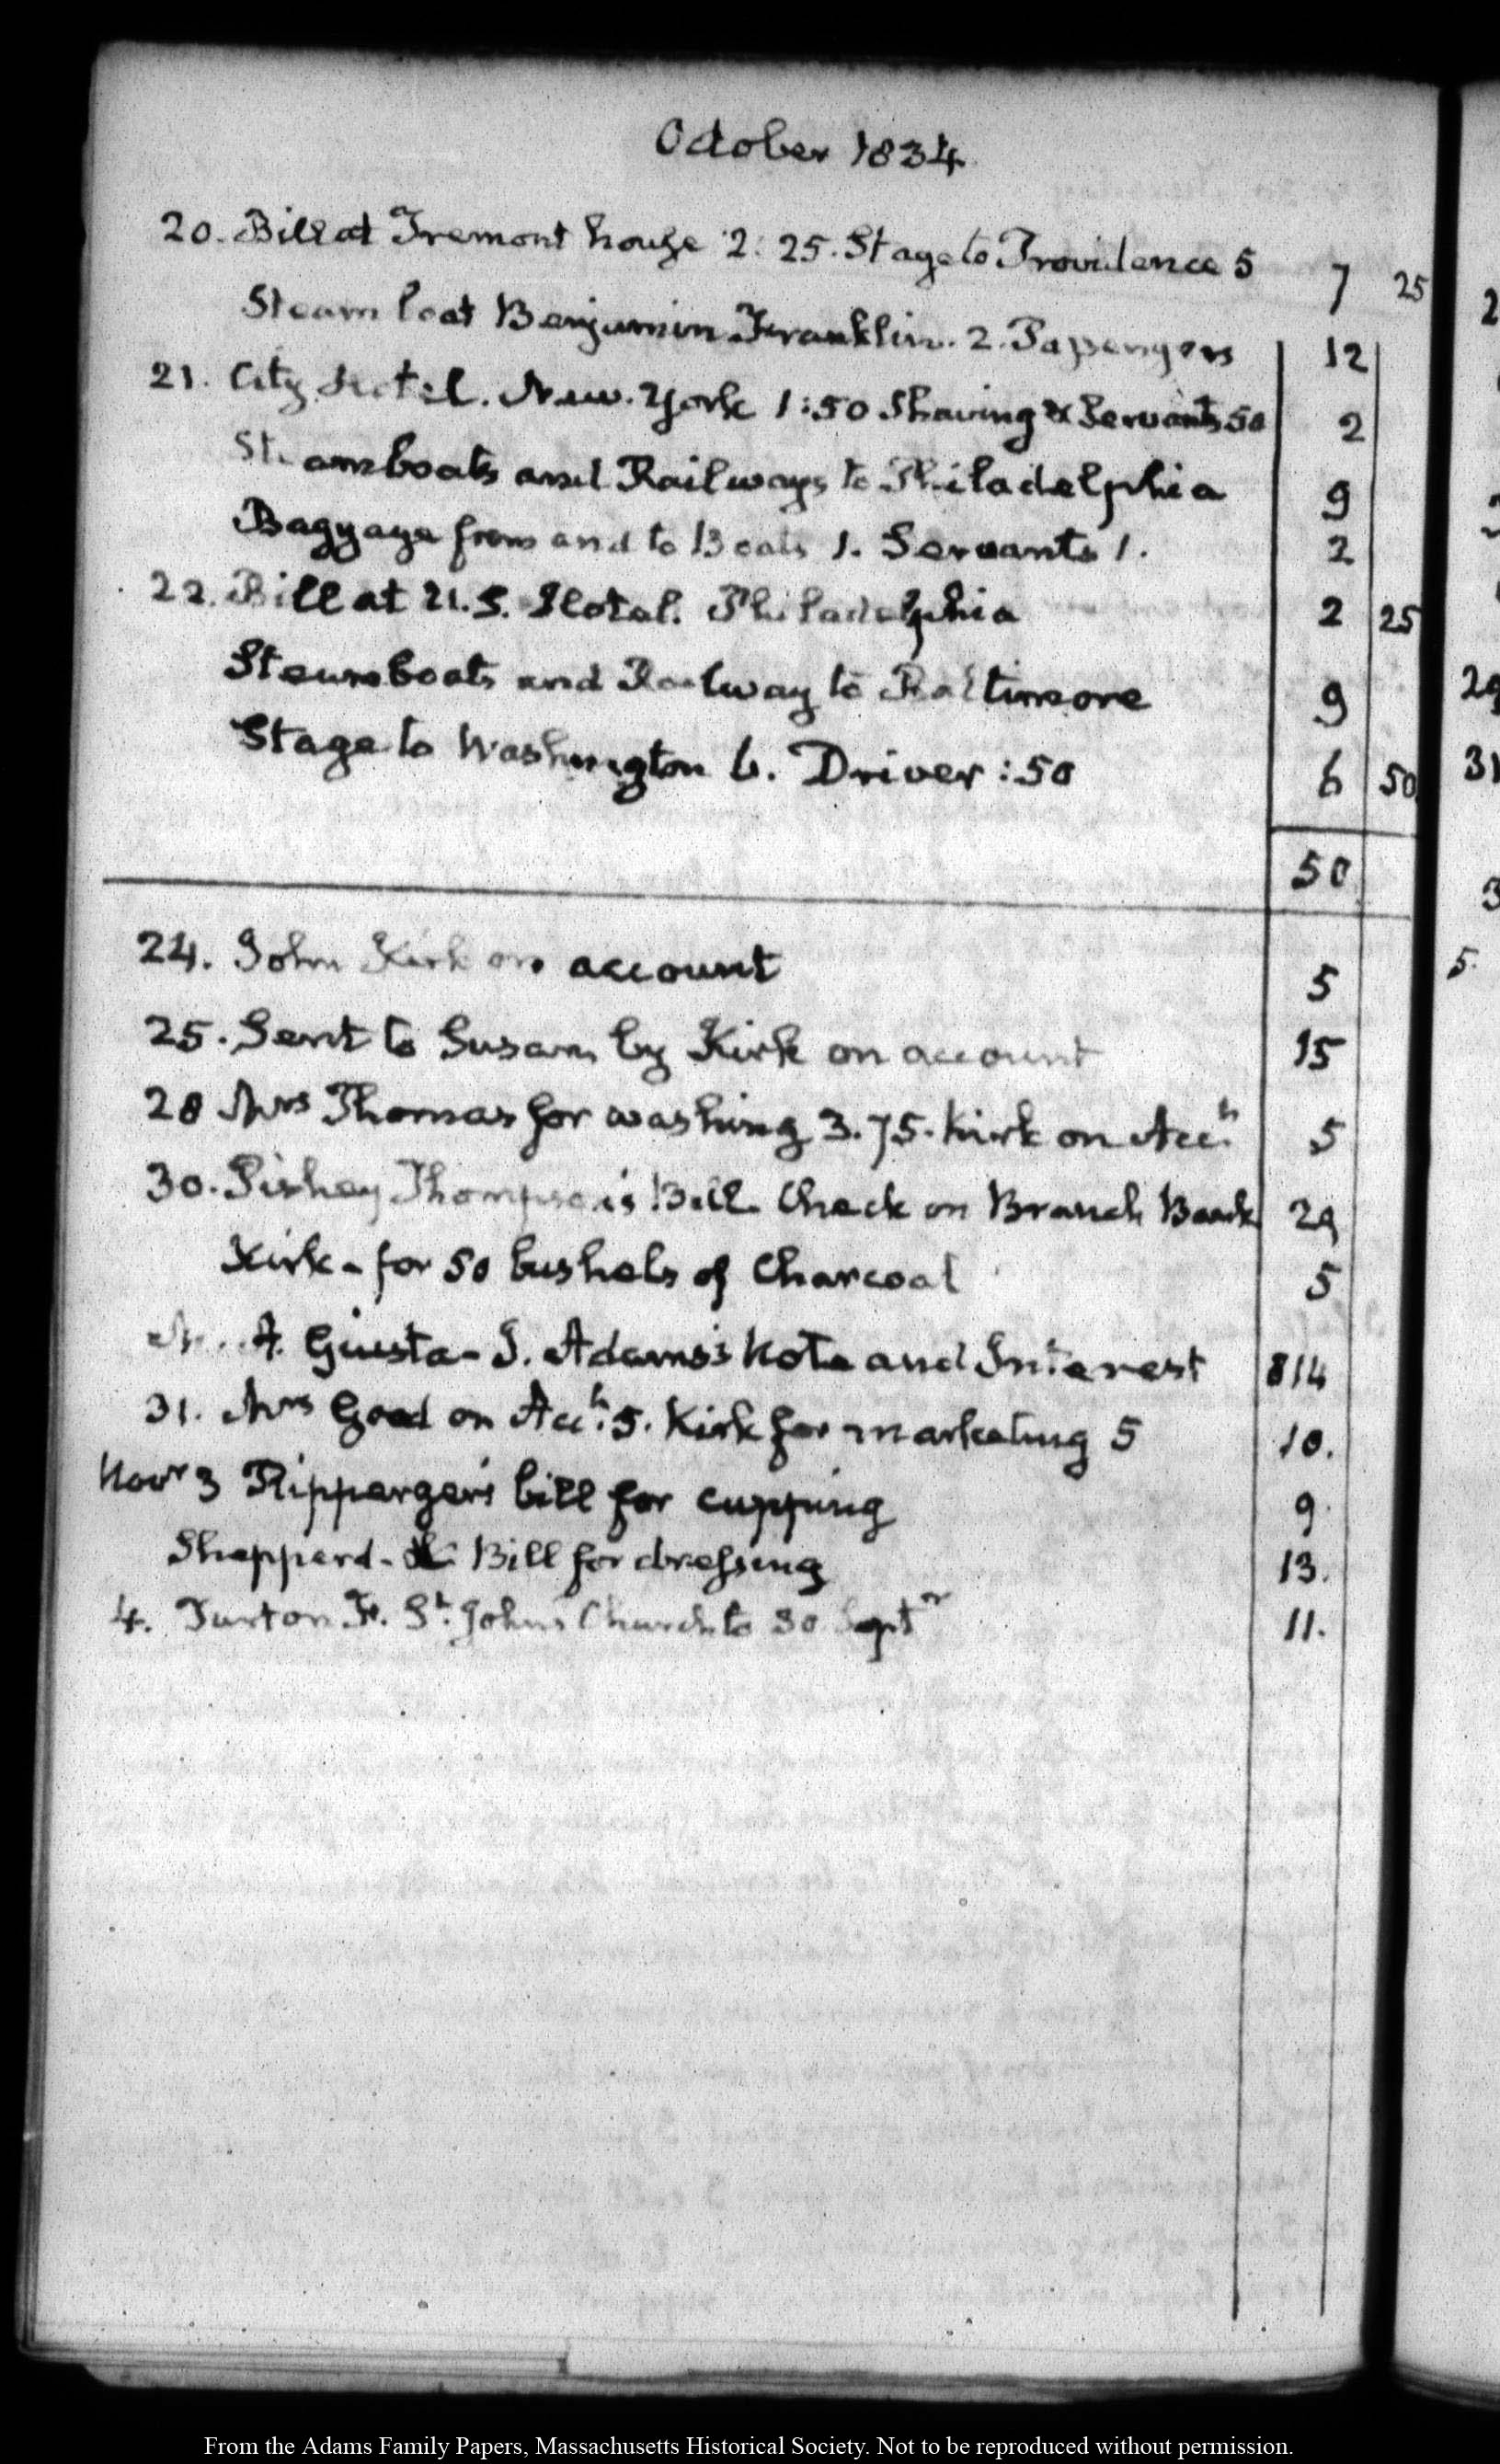 October 1834.
20. Bill at Tremont house 2:25. Stage to Providence 5 7 25
Steam boat Benjamin Franklin. 2. Passengers 12
21. City Hotel. New-York 1:50 Shaving & Servants 50 2
Steamboats and Railways to Philadelphia 9
Baggage from and to Boats 1. Servants 1. 2
22. Bill at U.S. Hotel. Philadelphia 2 25
Steamboats and Railway to Baltimore 9
Stage to Washington 6. Driver :50 6 50
50
24. John Kirk on account 5
25. Sent to Susan by Kirk on account 15
28 Mrs Thomas for washing 3.75. Kirk on Acct. 5
30. Pishey Thompson's Bill. Check on Branch Bank 29
Kirk - for 50 bushels of Charcoal 5
A. Giusta - J. Adams's Note and Interest 814
31. Mrs Good on Acct. 5. Kirk for marketing 5 10.
Novr 3 Ripperger's bill for cupping 9.
Sheppard - Bill for dressing 13.
4. Turton St. John's Church to 30 Septr 11.
2
29
31
3
5.
From the Adams Family Papers, Massachusetts Historical Society. Not to be reproduced without permission.